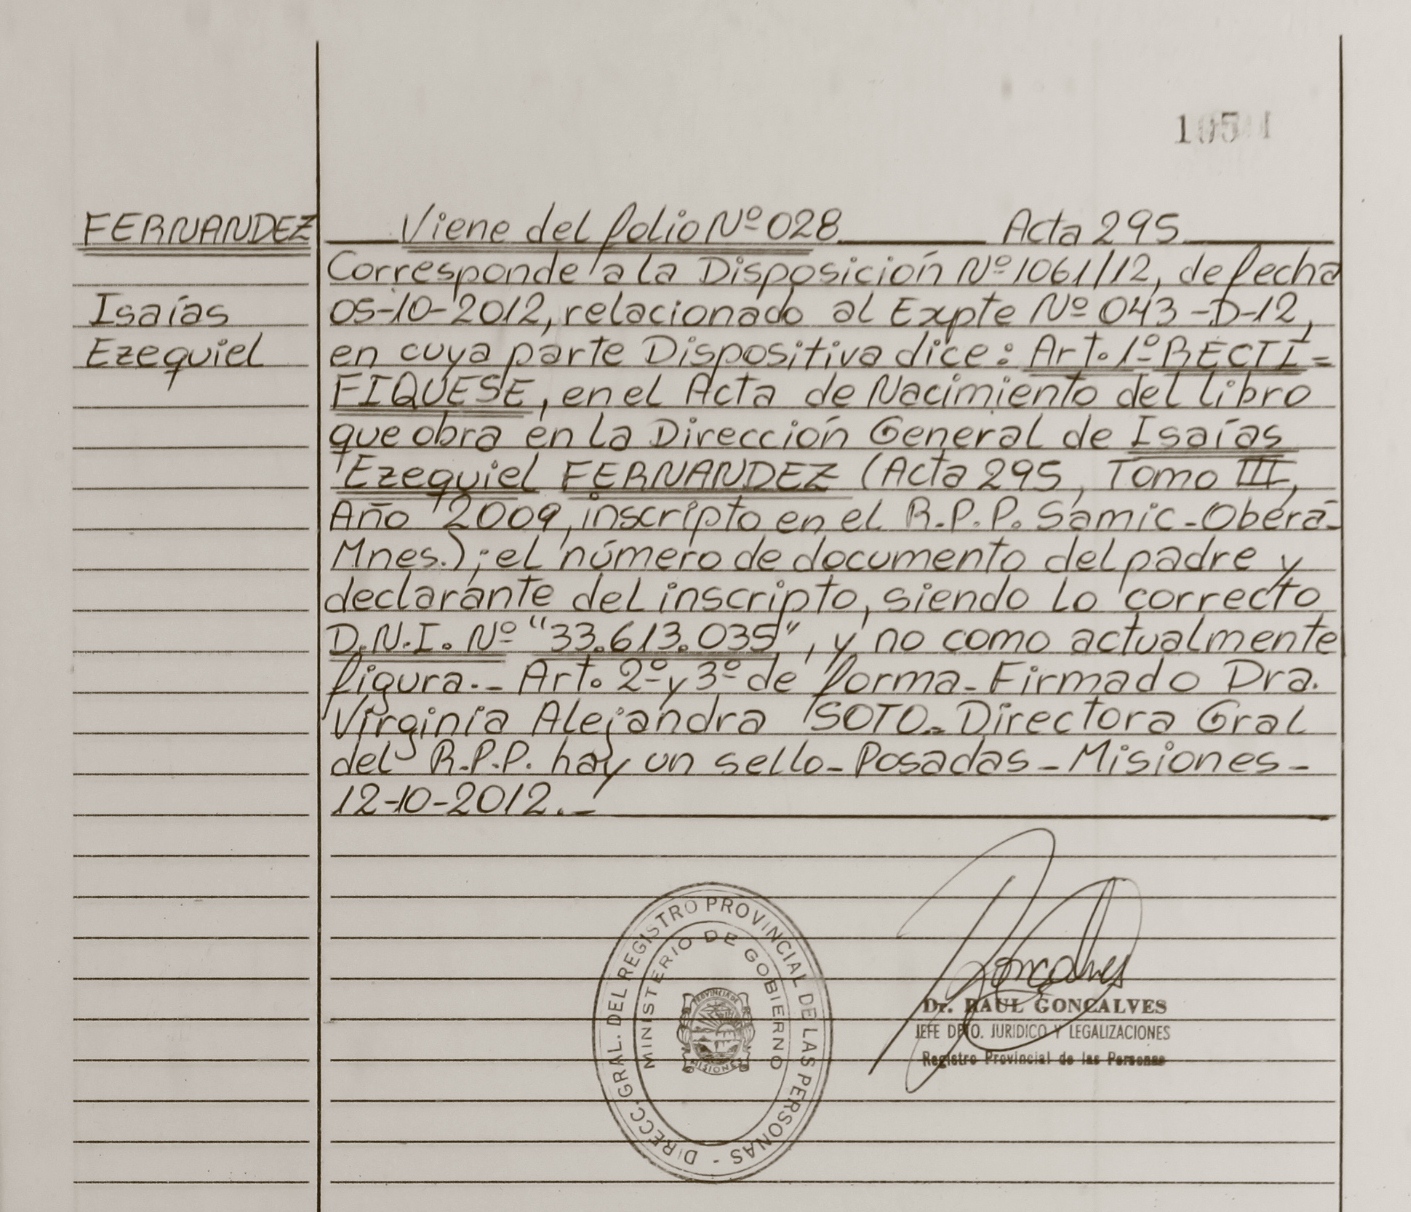 105
FERNANDEZ
Isaías
Ezequiel
Viene del folio Nº 028 Acta 295
Corresponde a la Disposición Nº 1061/12, de fecha
05-10-2012, relacionado al Expte Nº 043-D-12,
en cuya parte Dispositiva dice: Art. 1º RECTI=
FIQUESE, en el Acta de Nacimiento del libro
que obra en la Dirección General de Isaías
Ezequiel FERNANDEZ (Acta 295, Tomo III,
Año 2009, inscripto en el R.P.P. Samic-Oberá-
Mnes.); el número de documento del padre y
declarante del inscripto, siendo lo correcto
D.N.I. Nº "33.613.035", y no como actualmente
figura.- Art. 2º y 3º de forma- Firmado Dra.
Virginia Alejandra SOTO.- Directora Gral
del R.P.P. hay un sello- Posadas- Misiones-
12-10-2012.-
DIRECC. GRAL. DEL REGISTRO PROVINCIAL DE LAS PERSONAS -
MINISTERIO DE GOBIERNO
PROVINCIA DE
MISIONES
Goncalves
Dr. RAUL GONCALVES
JEFE DPTO. JURIDICO Y LEGALIZACIONES
Registro Provincial de las Personas